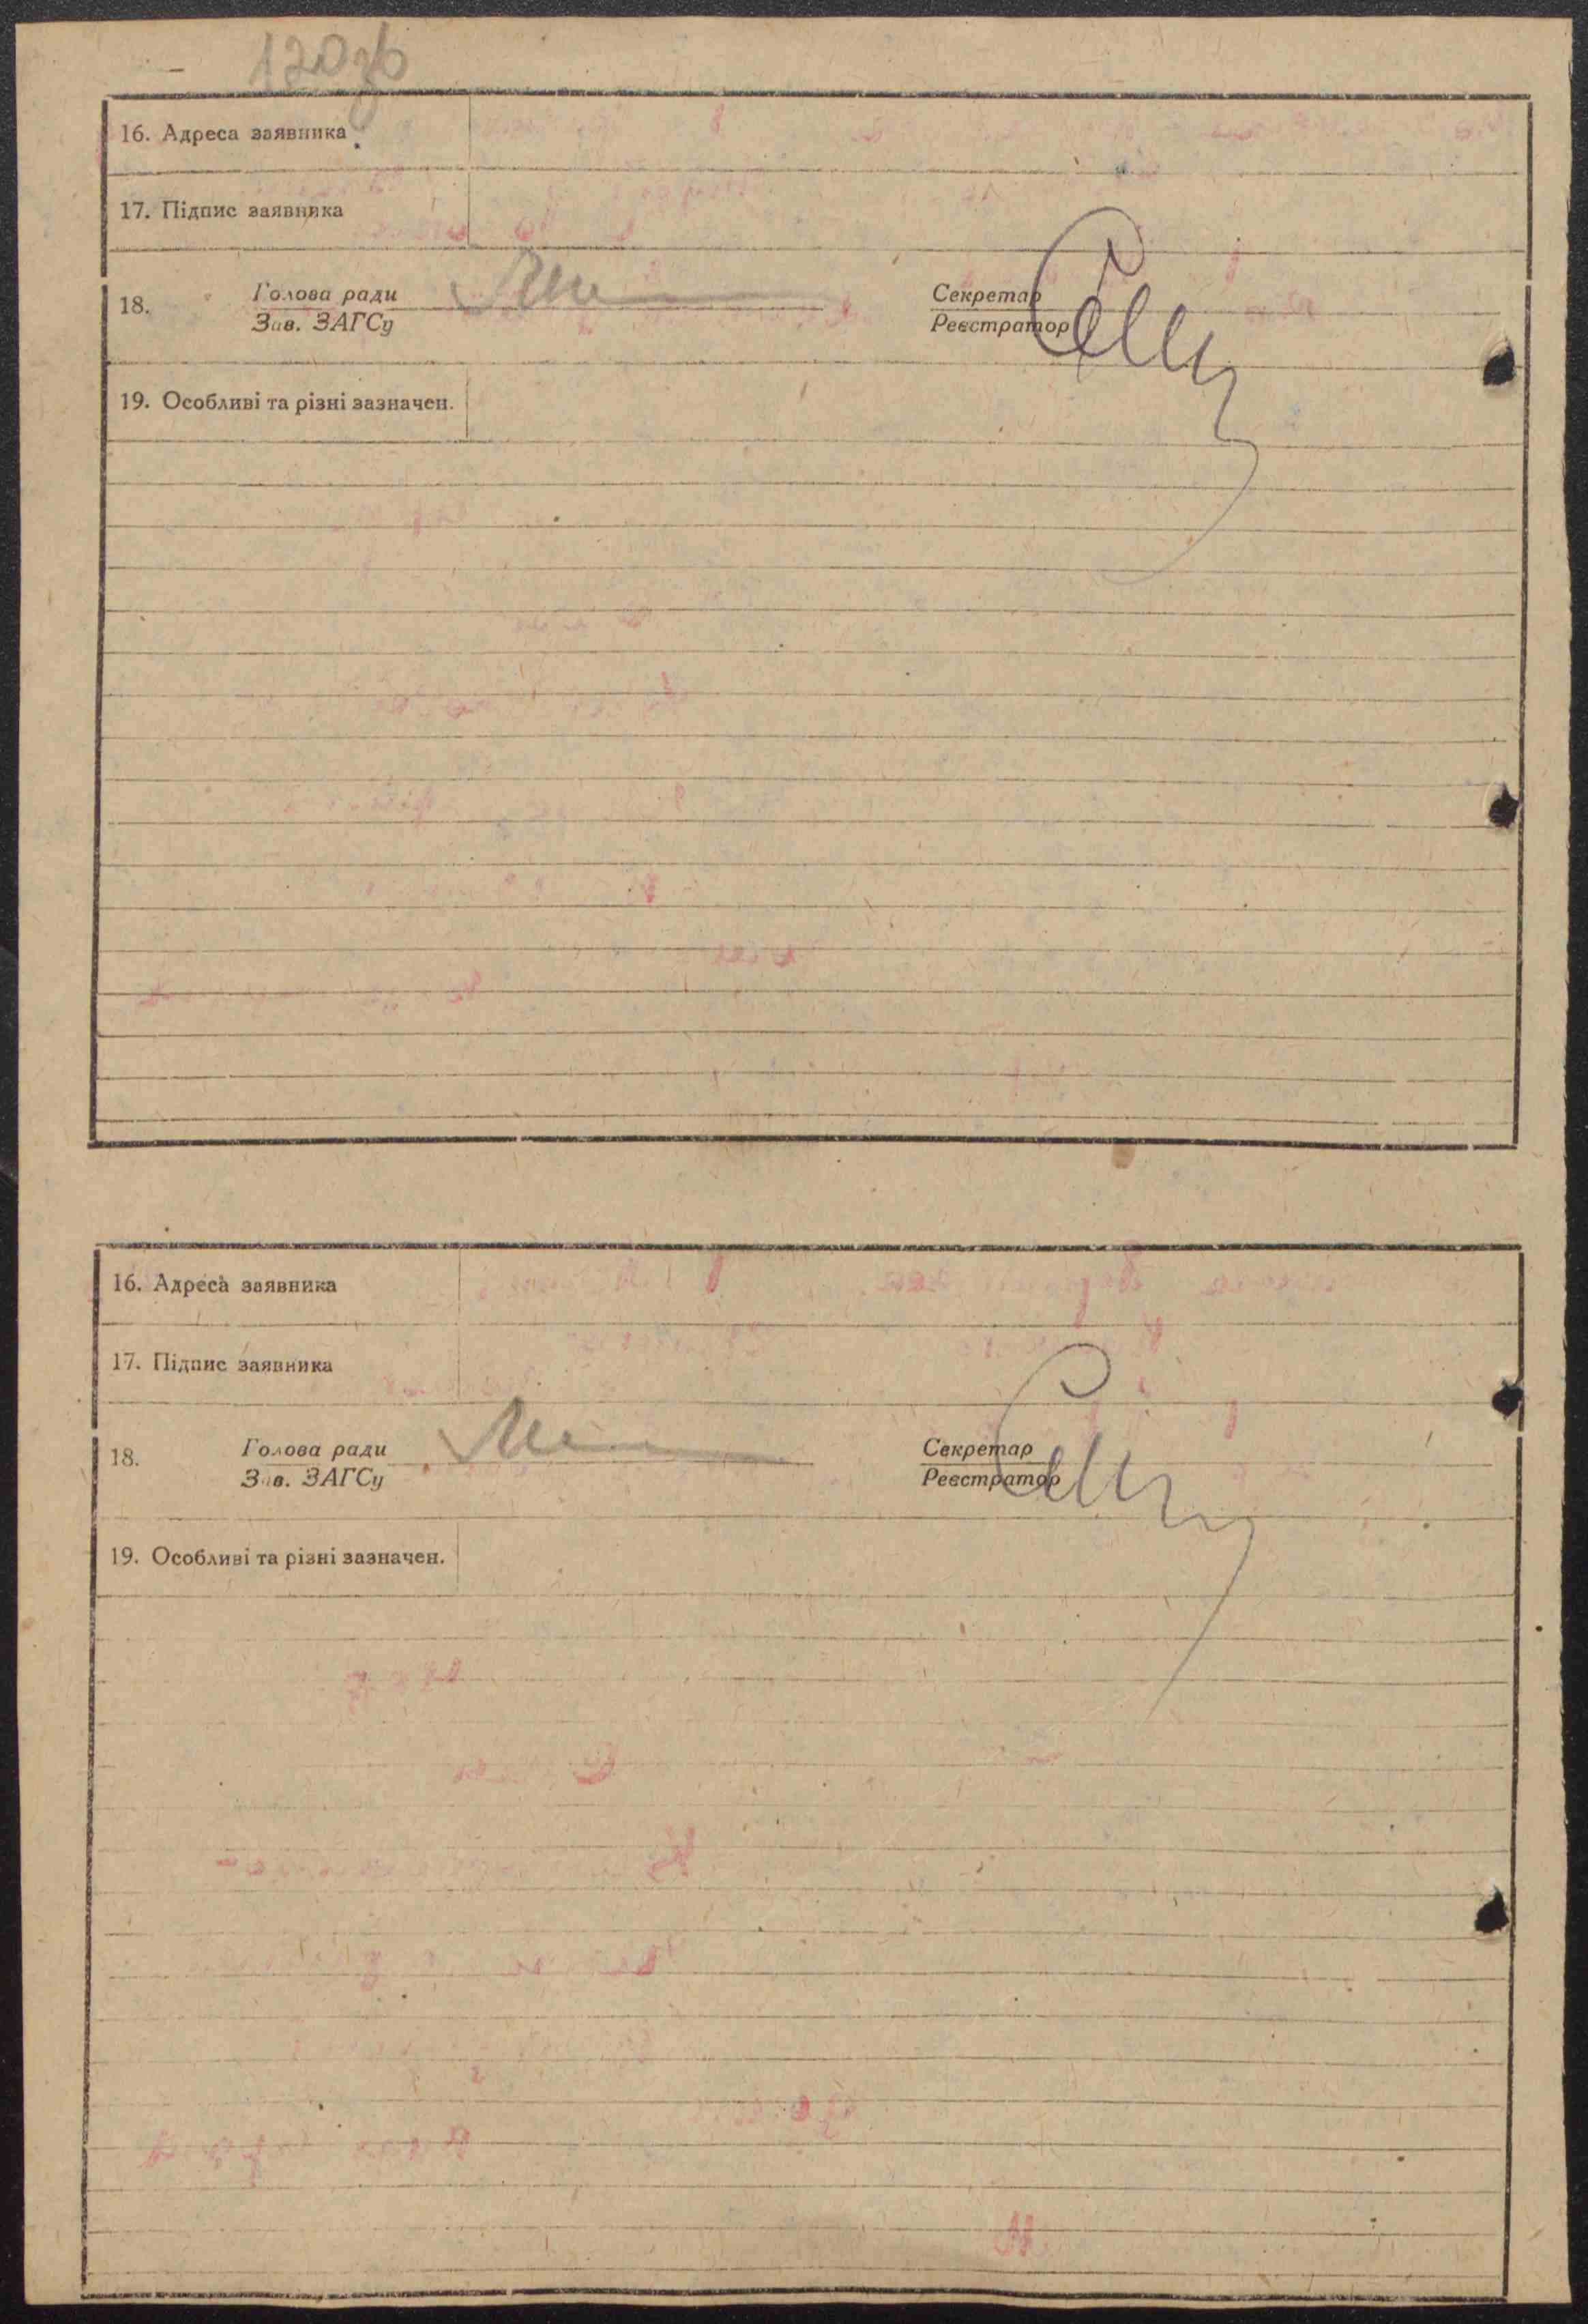 120зв
16. Адреса заявника
17. Підпис заявника
18. Голова ради
Зав. ЗАГСу
Секретар
Реєстратор
19. Особливі та різні зазначен.
16. Адреса заявника
17. Підпис заявника
18. Голова ради
Зав. ЗАГСу
Секретар
Реєстратор
19. Особливі та різні зазначен.